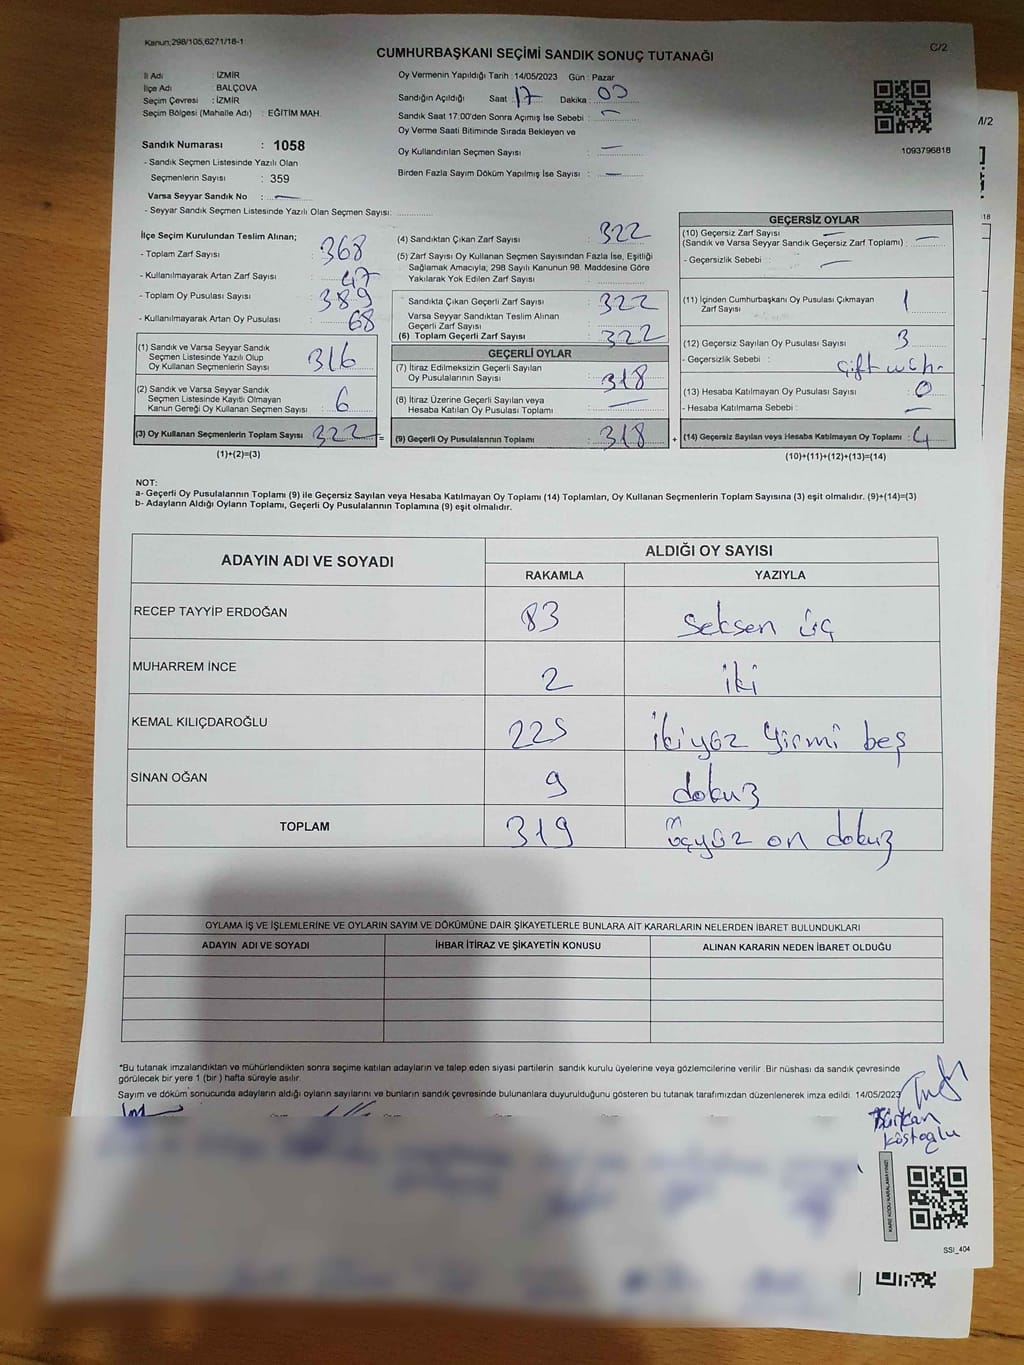 Kanun,298/105,6271/18-1
CUMHURBAŞKANI SEÇİMİ SANDIK SONUÇ TUTANAĞI
C/2
İl Adı : İZMİR
İlçe Adı : BALÇOVA
Seçim Çevresi : İZMİR
Seçim Bölgesi (Mahalle Adı) : EĞİTİM MAH.
Sandık Numarası : 1058
- Sandık Seçmen Listesinde Yazılı Olan
Seçmenlerin Sayısı : 359
Varsa Seyyar Sandık No : —
- Seyyar Sandık Seçmen Listesinde Yazılı Olan Seçmen Sayısı:
Oy Vermenin Yapıldığı Tarih : 14/05/2023 Gün : Pazar
Sandığın Açıldığı Saat : 17 Dakika : 00
Sandık Saat 17:00'den Sonra Açımış İse Sebebi : —
Oy Verme Saati Bitiminde Sırada Bekleyen ve
Oy Kullandırılan Seçmen Sayısı : —
Birden Fazla Sayım Döküm Yapılmış İse Sayısı : —
1093796818
M/2
İlçe Seçim Kurulundan Teslim Alınan;
- Toplam Zarf Sayısı : 368
- Kullanılmayarak Artan Zarf Sayısı : 47
- Toplam Oy Pusulası Sayısı : 389
- Kullanılmayarak Artan Oy Pusulası : 68
(1) Sandık ve Varsa Seyyar Sandık
Seçmen Listesinde Yazılı Olup
Oy Kullanan Seçmenlerin Sayısı : 316
(2) Sandık ve Varsa Seyyar Sandık
Seçmen Listesinde Kayıtlı Olmayan
Kanun Gereği Oy Kullanan Seçmen Sayısı : 6
(3) Oy Kullanan Seçmenlerin Toplam Sayısı : 322
(1)+(2)=(3)
(4) Sandıktan Çıkan Zarf Sayısı : 322
(5) Zarf Sayısı Oy Kullanan Seçmen Sayısından Fazla İse, Eşitliği
Sağlamak Amacıyla; 298 Sayılı Kanunun 98. Maddesine Göre
Yakılarak Yok Edilen Zarf Sayısı :
Sandıkta Çıkan Geçerli Zarf Sayısı : 322
Varsa Seyyar Sandıktan Teslim Alınan
Geçerli Zarf Sayısı :
(6) Toplam Geçerli Zarf Sayısı : 322
GEÇERLİ OYLAR
(7) İtiraz Edilmeksizin Geçerli Sayılan
Oy Pusulalarının Sayısı : 318
(8) İtiraz Üzerine Geçerli Sayılan veya
Hesaba Katılan Oy Pusulası Toplamı : —
(9) Geçerli Oy Pusulalarının Toplamı : 318
GEÇERSİZ OYLAR
(10) Geçersiz Zarf Sayısı —
(Sandık ve Varsa Seyyar Sandık Geçersiz Zarf Toplamı) : —
- Geçersizlik Sebebi : —
(11) İçinden Cumhurbaşkanı Oy Pusulası Çıkmayan
Zarf Sayısı : 1
(12) Geçersiz Sayılan Oy Pusulası Sayısı : 3
- Geçersizlik Sebebi : çift
(13) Hesaba Katılmayan Oy Pusulası Sayısı : 0
- Hesaba Katılmama Sebebi : —
(14) Geçersiz Sayılan veya Hesaba Katılmayan Oy Toplamı : 4
(10)+(11)+(12)+(13)=(14)
NOT:
a- Geçerli Oy Pusulalarının Toplamı (9) ile Geçersiz Sayılan veya Hesaba Katılmayan Oy Toplamı (14) Toplamları, Oy Kullanan Seçmenlerin Toplam Sayısına (3) eşit olmalıdır. (9)+(14)=(3)
b- Adayların Aldığı Oyların Toplamı, Geçerli Oy Pusulalarının Toplamına (9) eşit olmalıdır.
ADAYIN ADI VE SOYADI
ALDIĞI OY SAYISI
RAKAMLA YAZIYLA
RECEP TAYYİP ERDOĞAN 83 seksen üç
MUHARREM İNCE 2 iki
KEMAL KILIÇDAROĞLU 225 ikiyüz yirmi beş
SİNAN OĞAN 9 dokuz
TOPLAM 319 üçyüz on dokuz
OYLAMA İŞ VE İŞLEMLERİNE VE OYLARIN SAYIM VE DÖKÜMÜNE DAİR ŞİKAYETLERLE BUNLARA AİT KARARLARIN NELERDEN İBARET BULUNDUKLARI
ADAYIN ADI VE SOYADI İHBAR İTİRAZ VE ŞİKAYETİN KONUSU ALINAN KARARIN NEDEN İBARET OLDUĞU
*Bu tutanak imzalandıktan ve mühürlendikten sonra seçime katılan adayların ve talep eden siyasi partilerin sandık kurulu üyelerine veya gözlemcilerine verilir .Bir nüshası da sandık çevresinde
görülecek bir yere 1 (bir ) hafta süreyle asılır.
Sayım ve döküm sonucunda adayların aldığı oyların sayılarını ve bunların sandık çevresinde bulunanlara duyurulduğunu gösteren bu tutanak tarafımızdan düzenlenerek imza edildi. 14/05/2023
Köstoğlu
KARE KODU KARALAMAYINIZ!
SSI_404